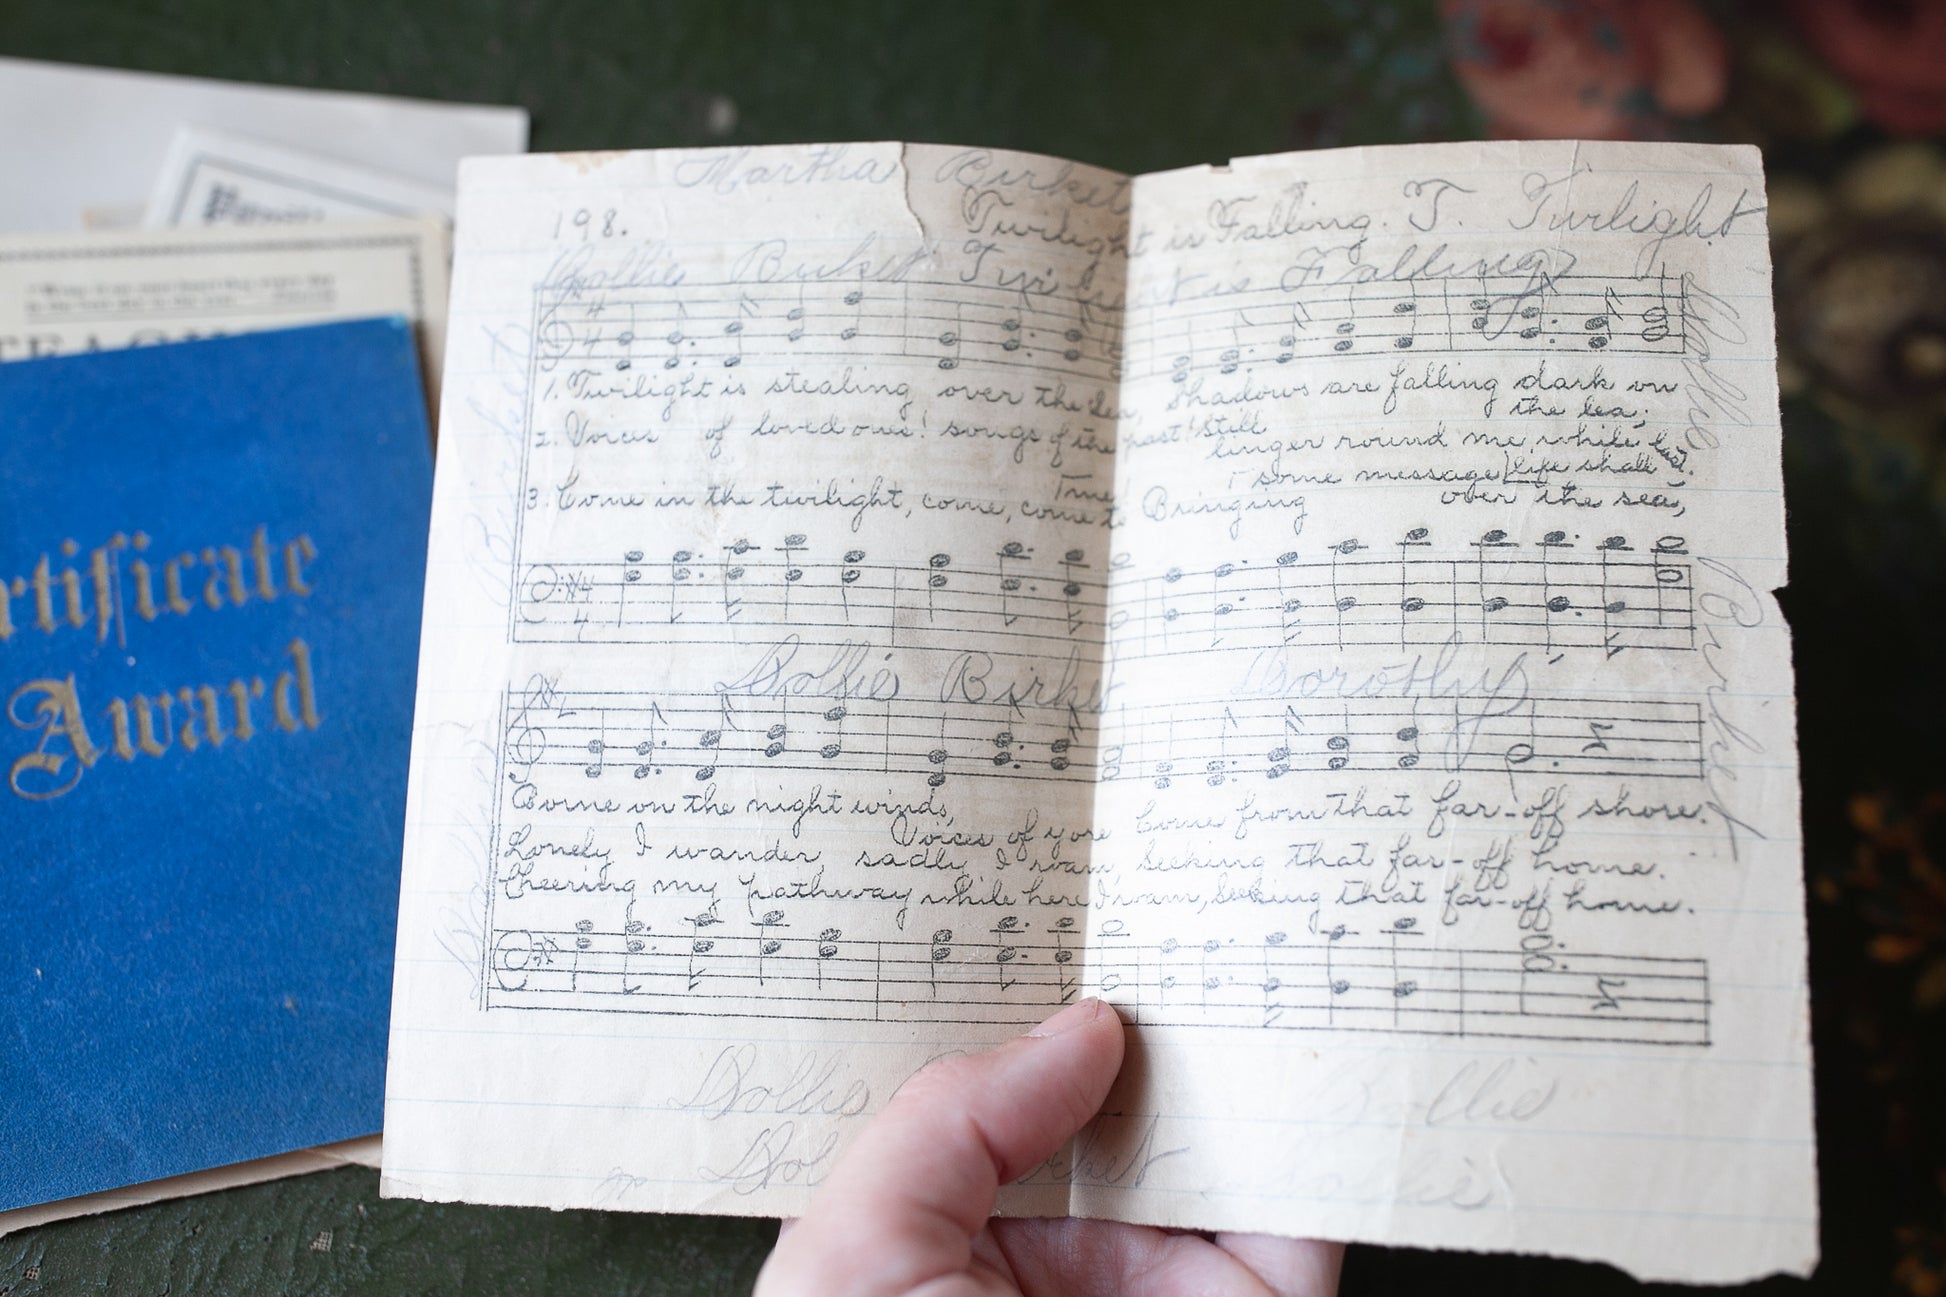 Martha Birket
198.
Twilight is Falling. T. Twilight
Dollie Birket Twilight is Falling
4
4
1. Twilight is stealing over the sea, Shadows are falling dark on
the lea;
2. Voices of loved ones! songs of the past! Still
linger round me while
life shall last.
3. Come in the twilight, come, come to
me!
Bringing
some message
over the sea,
4
4
Dollie Birket Dorothy
Borne on the night winds,
Voices of yore Come from that far-off shore.
Lonely I wander, sadly I roam, Seeking that far-off home.
Cheering my pathway while here I roam, Seeking that far-off home.
Dollie
Dollie
Birket
Dollie
Birket
Dollie
Birket
rtificate
Award